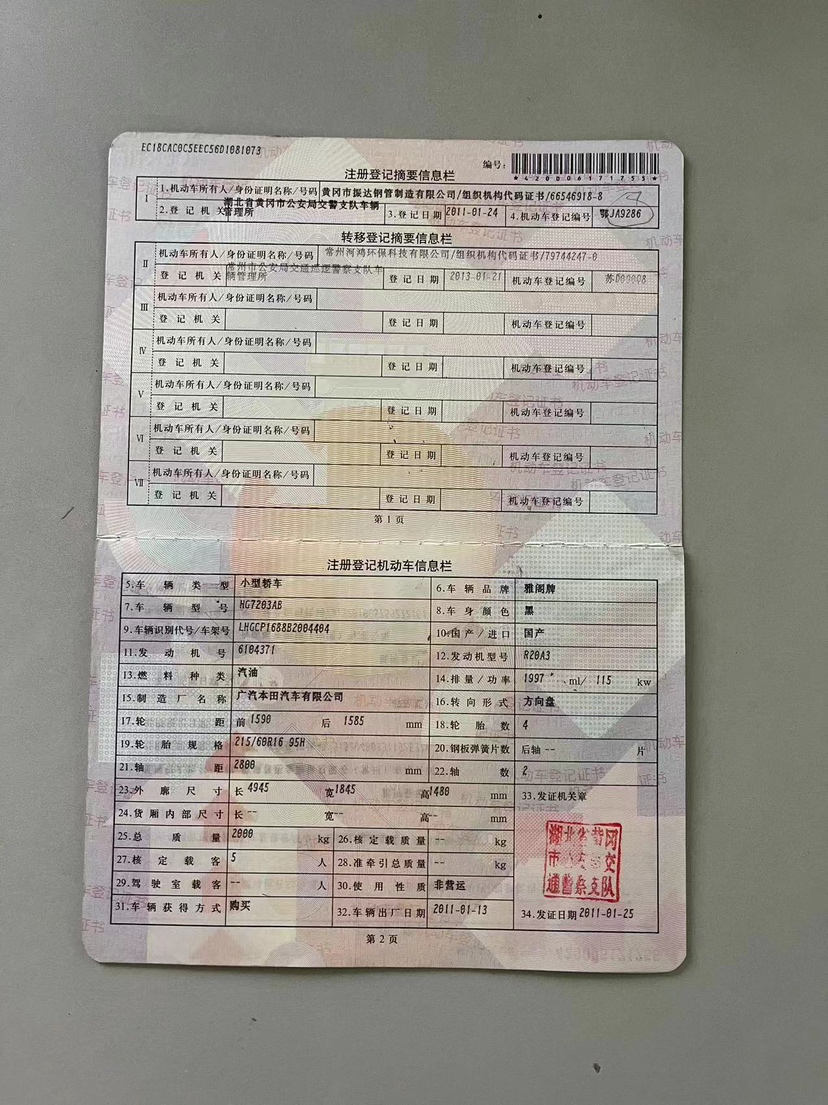 EC18CAC0C5EEC56D1081073
编号:
*420006171755*
注册登记摘要信息栏
Ⅰ 1.机动车所有人/身份证明名称/号码 黄冈市振达钢管制造有限公司/组织机构代码证书/66546918-8
2.登记机关 湖北省黄冈市公安局交警支队车辆管理所 3.登记日期 2011-01-24 4.机动车登记编号 鄂JA9286
转移登记摘要信息栏
Ⅱ 机动车所有人/身份证明名称/号码 常州河鸿环保科技有限公司/组织机构代码证书/79744247-0
登记机关 常州市公安局交通巡逻警察支队车辆管理所 登记日期 2013-01-21 机动车登记编号
Ⅲ 机动车所有人/身份证明名称/号码
登记机关 登记日期 机动车登记编号
Ⅳ 机动车所有人/身份证明名称/号码
登记机关 登记日期 机动车登记编号
Ⅴ 机动车所有人/身份证明名称/号码
登记机关 登记日期 机动车登记编号
Ⅵ 机动车所有人/身份证明名称/号码
登记机关 登记日期 机动车登记编号
Ⅶ 机动车所有人/身份证明名称/号码
登记机关 登记日期 机动车登记编号
第1页
注册登记机动车信息栏
5.车辆类型 小型轿车 6.车辆品牌 雅阁牌
7.车辆型号 HG7203AB 8.车身颜色 黑
9.车辆识别代号/车架号 LHGCP1688B2004404 10.国产/进口 国产
11.发动机号 6104371 12.发动机型号 R20A3
13.燃料种类 汽油 14.排量/功率 1997 ml/ 115 kw
15.制造厂名称 广汽本田汽车有限公司 16.转向形式 方向盘
17.轮距 前 1590 后 1585 mm 18.轮胎数 4
19.轮胎规格 215/60R16 95H 20.钢板弹簧片数 后轴 -- 片
21.轴距 2800 mm 22.轴数 2
23.外廓尺寸 长 4945 宽 1845 高 1480 mm 33.发证机关章
24.货厢内部尺寸 长 -- 宽 -- 高 -- mm
25.总质量 2000 kg 26.核定载质量 -- kg
27.核定载客 5 人 28.准牵引总质量 -- kg
29.驾驶室载客 -- 人 30.使用性质 非营运
31.车辆获得方式 购买 32.车辆出厂日期 2011-01-13 34.发证日期 2011-01-25
湖北省黄冈
市公安局交
通警察支队
第2页